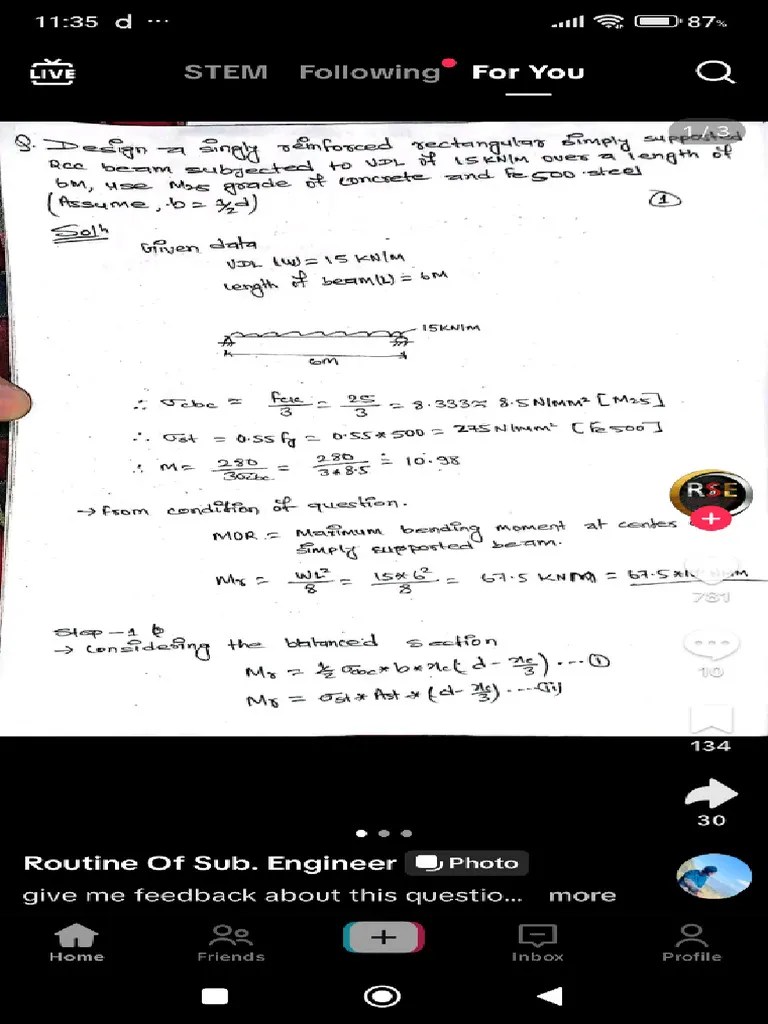 11:35 d ...
87%
LIVE
STEM Following For You
1/3
Q. Design a singly reinforced rectangular simply supported
RCC beam subjected to UDL of 15KN/M over a length of
6m, use M25 grade of concrete and Fe500 steel
(Assume, b = 1/2 d)
①
Solⁿ
Given data
UDL (W) = 15 KN/M
Length of beam(L) = 6M
15KN/M
6M
∴ σcbc = fck/3 = 25/3 = 8.333 ≈ 8.5 N/MM² [M25]
∴ σst = 0.55 fy = 0.55*500 = 275 N/mm² [Fe500]
∴ M = 280/3σcbc = 280/3*8.5 = 10.98
→ From condition of question.
MOR = Maximum bending moment at center
simply supported beam.
Mr = WL²/8 = 15*6²/8 = 67.5 KNM = 67.5*
RSE
781
Step-1
→ Considering the balanced section
Mr = 1/2 σcbc * b * xc (d - xc/3) .... ①
Mr = σst * Ast * (d - xc/3) .... (ii)
10
134
30
Routine Of Sub. Engineer Photo
give me feedback about this questio... more
Home Friends Inbox Profile